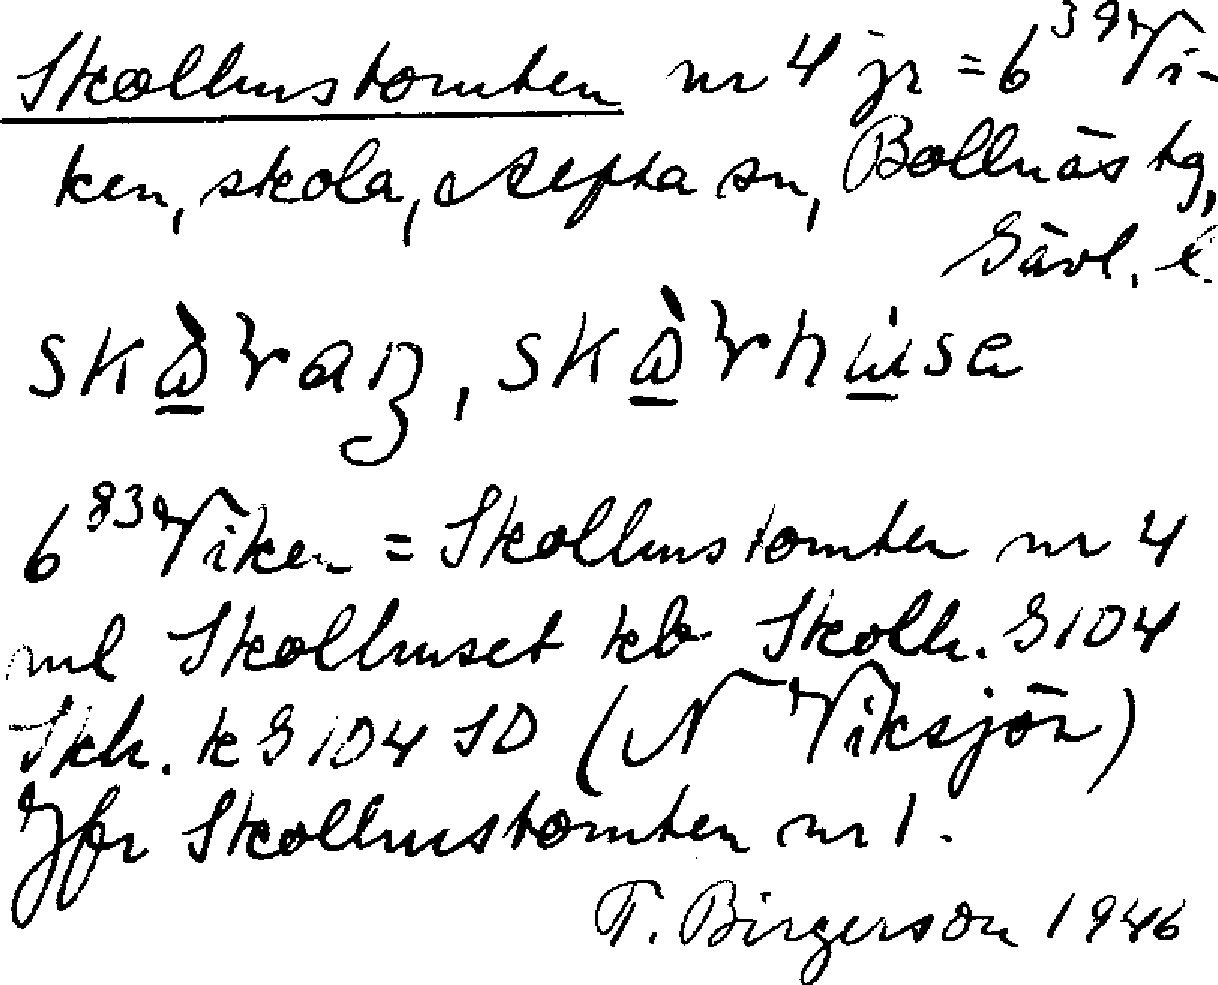 Skolhustomten nr 4 jr = 6³⁹ Vi-
ken, skola, Alfta sn, Bollnäs tg,
Gävl. l.
6⁸³ Viken = Skolhustomten nr 4
ml Skolhuset kb Skolh. G104
Skh. k G104 SO (N Viksjön)
Jfr Skolhustomten nr 1.
T. Birgerson 1946